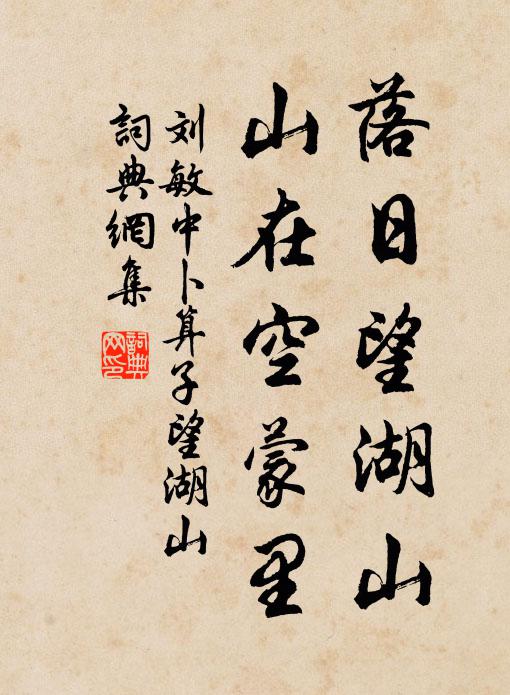 落日望湖山
山在空蒙里
刘敏中卜算子望湖山
詞典網集
詞典
网印